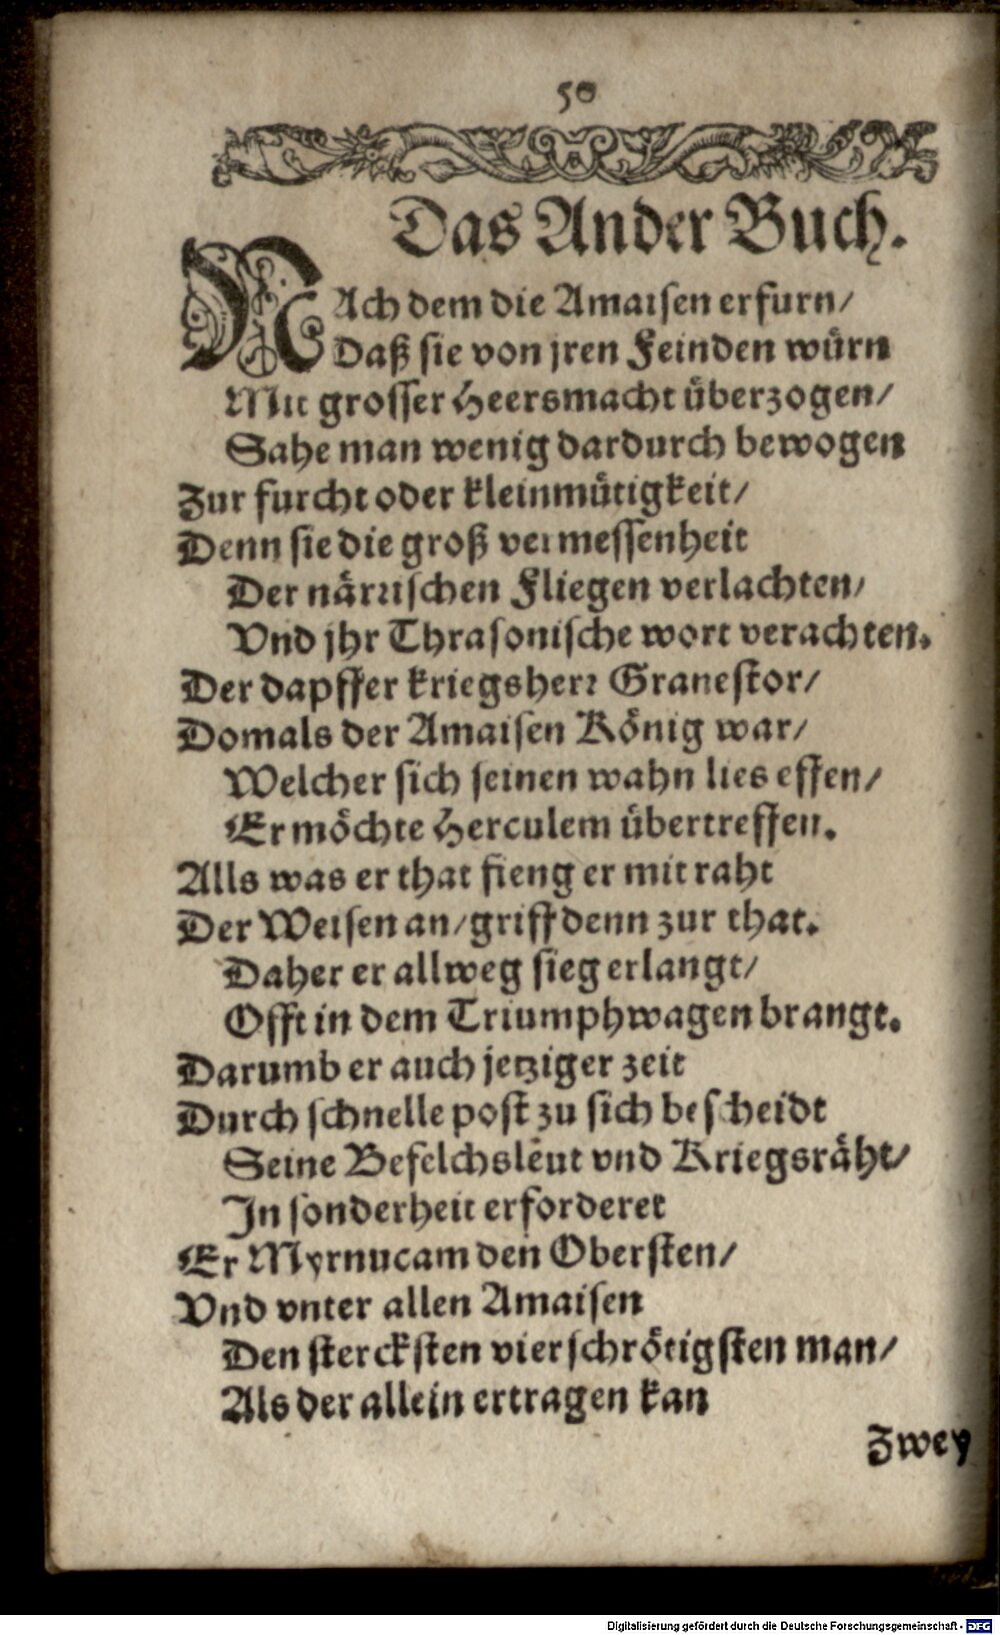 50
Das Ander Buch.
NAch dem die Amaisen erfurn/
Daß sie von jren Feinden würn
Mit grosser Heersmacht überzogen/
Sahe man wenig dardurch bewogen
Zur furcht oder kleinmütigkeit/
Denn sie die groß vermessenheit
Der närrischen Fliegen verlachten/
Vnd jhr Thrasonische wort verachten.
Der dapffer kriegsherr Granestor/
Domals der Amaisen König war/
Welcher sich seinen wahn lies effen/
Er möchte Herculem übertreffen.
Alls was er that fieng er mit raht
Der Weisen an/griff denn zur that.
Daher er allweg sieg erlangt/
Offt in dem Triumphwagen brangt.
Darumb er auch jetziger zeit
Durch schnelle post zu sich bescheidt
Seine Befelchsleut vnd Kriegsräht/
In sonderheit erforderet
Er Myrnucam den Obersten/
Vnd vnter allen Amaisen
Den stercksten vierschrötigsten man/
Als der allein ertragen kan
Zwey
Digitalisierung gefördert durch die Deutsche Forschungsgemeinschaft - DFG